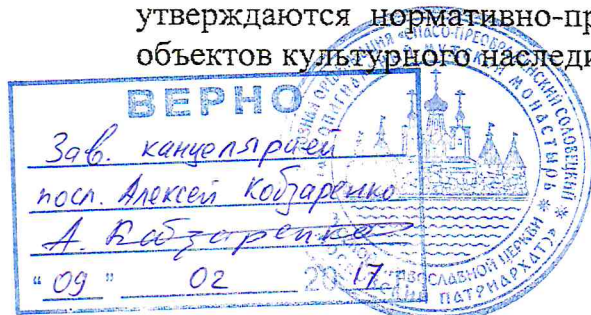 утверждаются нормативно-пр
объектов культурного наследи
ВЕРНО
Зав. канцелярией
посл. Алексей Кобзаренко
А. Кобзаренко
"09" 02 2017
СПАСО-ПРЕОБРАЖЕНСКИЙ СОЛОВЕЦКИЙ
МОНАСТЫРЬ
ПРАВОСЛАВНОЙ ЦЕРКВИ
ПАТРИАРХАТ)»